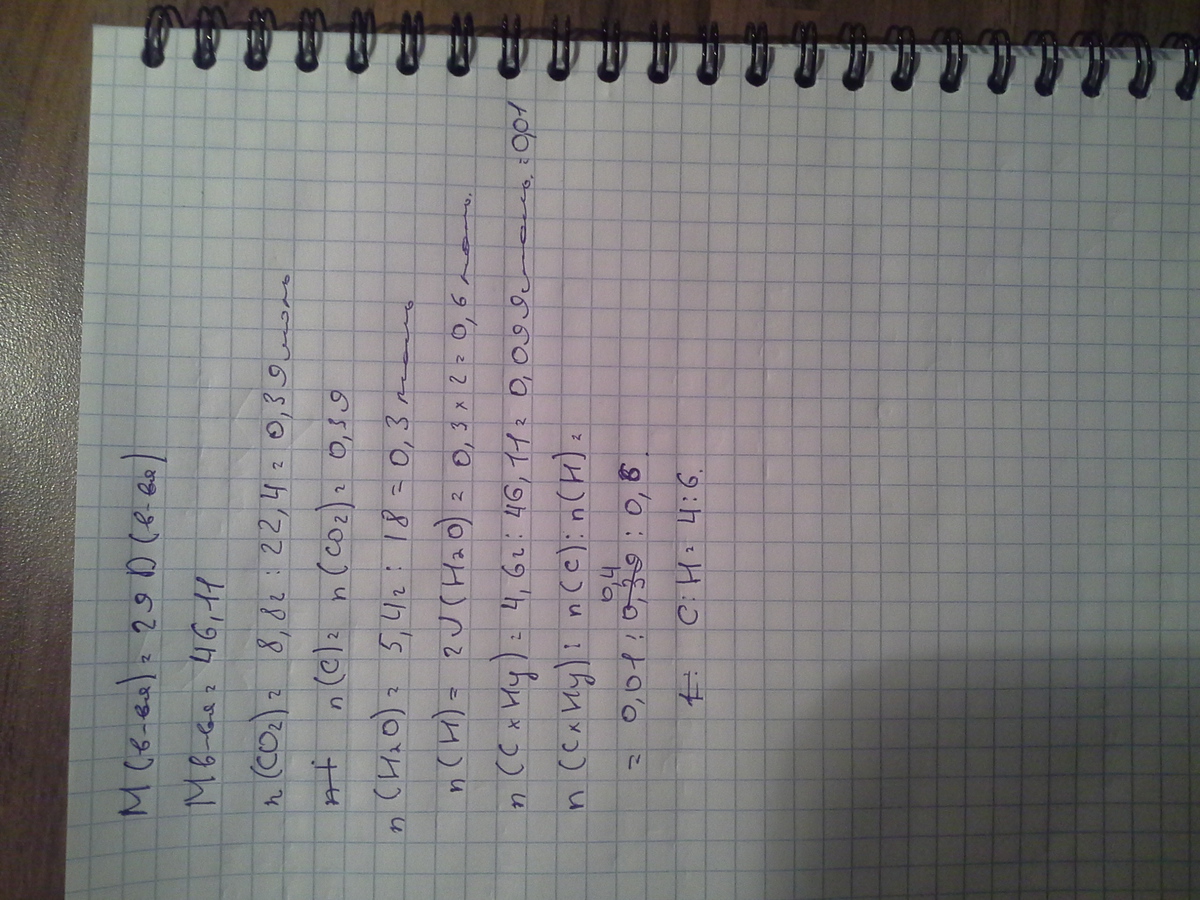 M(в-ва) = 29 D(в-ва)
Mв-ва = 46,11
n(CO2) = 8,8г : 22,4 = 0,39 моль
n(C) = n(CO2) = 0,39
n(H2O) = 5,4г : 18 = 0,3 моль
n(H) = 2√(H2O) = 0,3 x 2 = 0,6 моль.
n(CxHy) = 4,6г : 46,11 = 0,099 моль. = 0,01
n(CxHy) : n(C) : n(H) =
= 0,01 : 0,39 0,4 : 0,6.
C:H = 4:6.